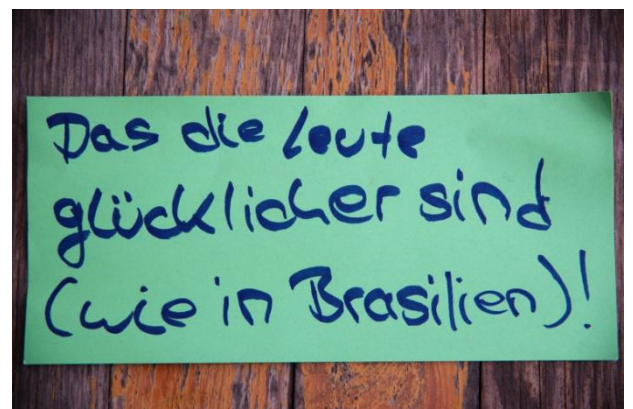 Das die Leute
glücklicher sind
(wie in Brasilien)!